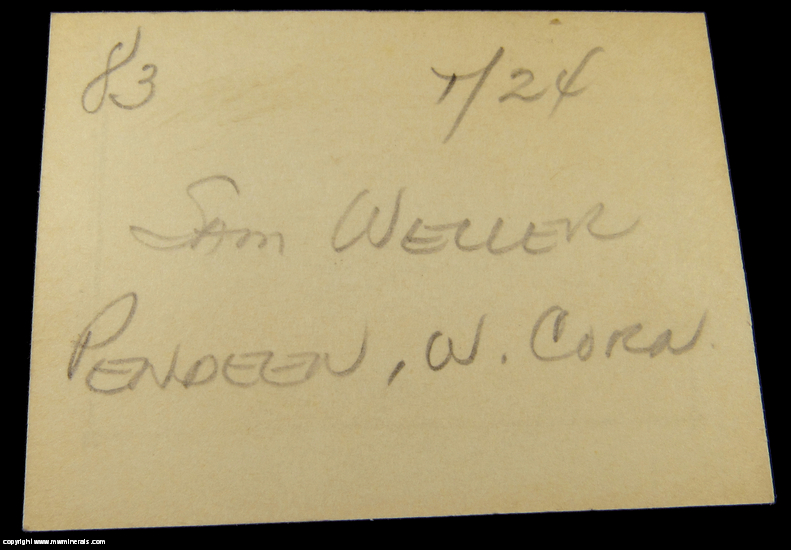 83 7/24
Sam WELLER
PENDEEN, W. CORN.
copyright www.mwminerals.com